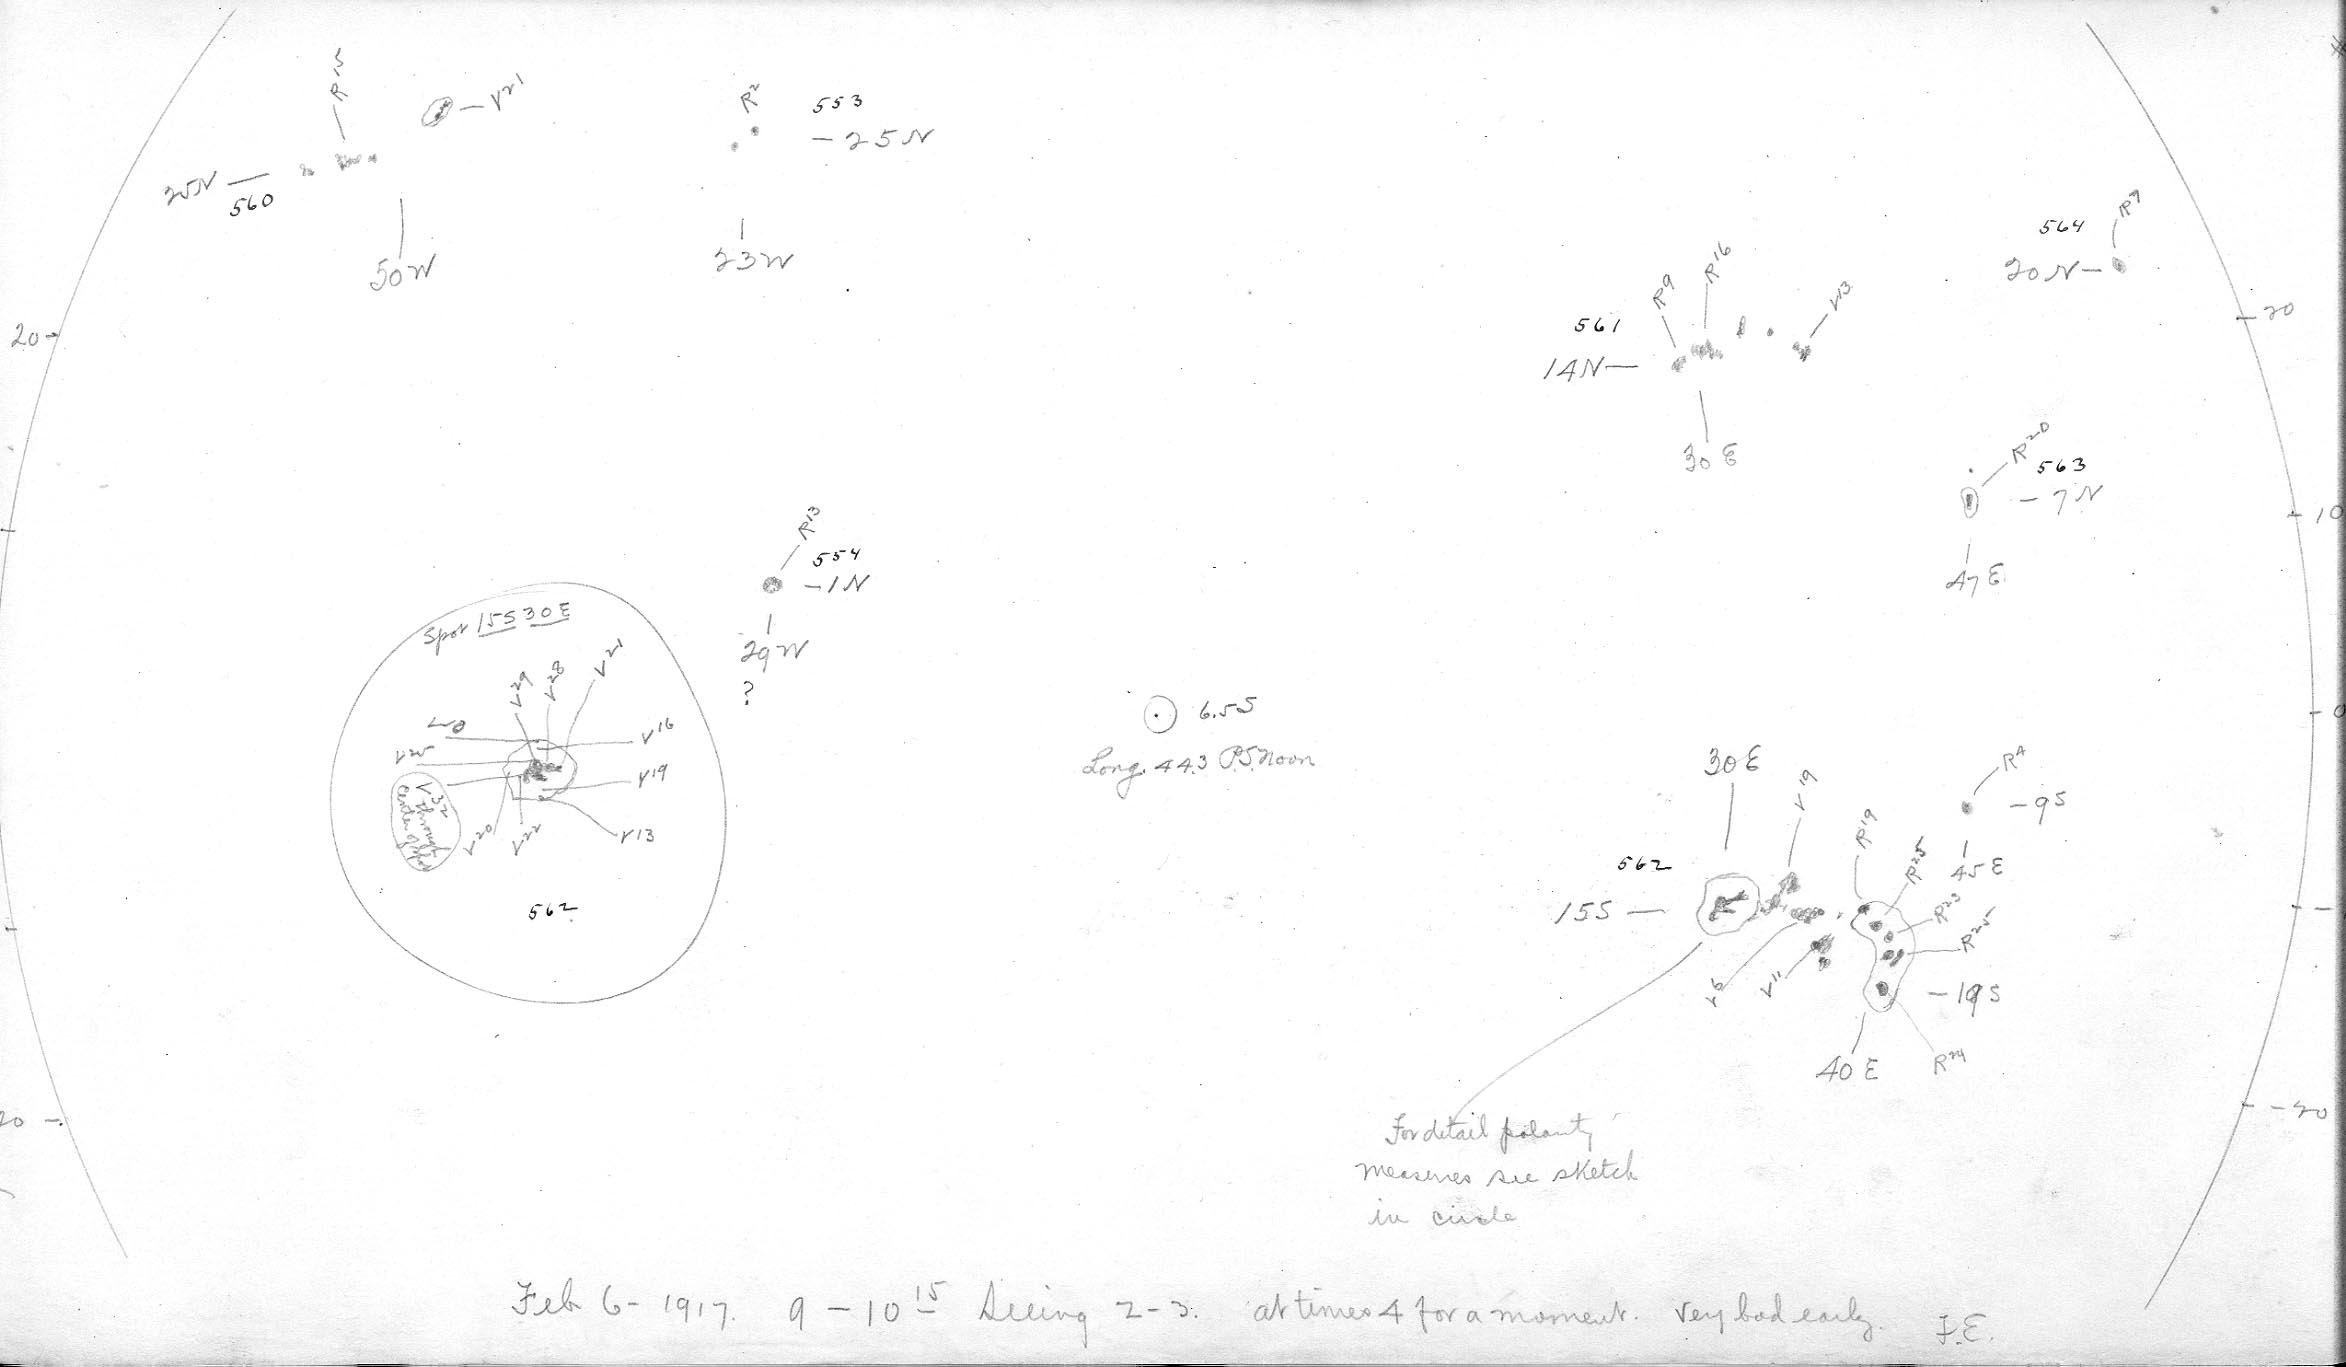 R15
V21
R2
553
-25N
25N
560
50W
23W
564
R7
20N-
20-
-20
R9
R16
V13
561
14N-
30E
R20
563
-7N
-10
47E
R13
554
-1N
29W
?
Spot 15S30E
V29
V28
V21
V16
V25
V19
V32
through
center of spot
V20
V22
V13
562
6.5S
Long. 44.3 P.S. Noon
-0
30E
V19
R19
R4
-9S
562
R25
45E
15S-
R23
R25
V6
V11
-19S
40E
R24
20-
-20
For detail polarity
measures see sketch
in circle
Feb 6- 1917. 9-10 15 Seeing 2-3. at times 4 for a moment. Very bad early. F.E.